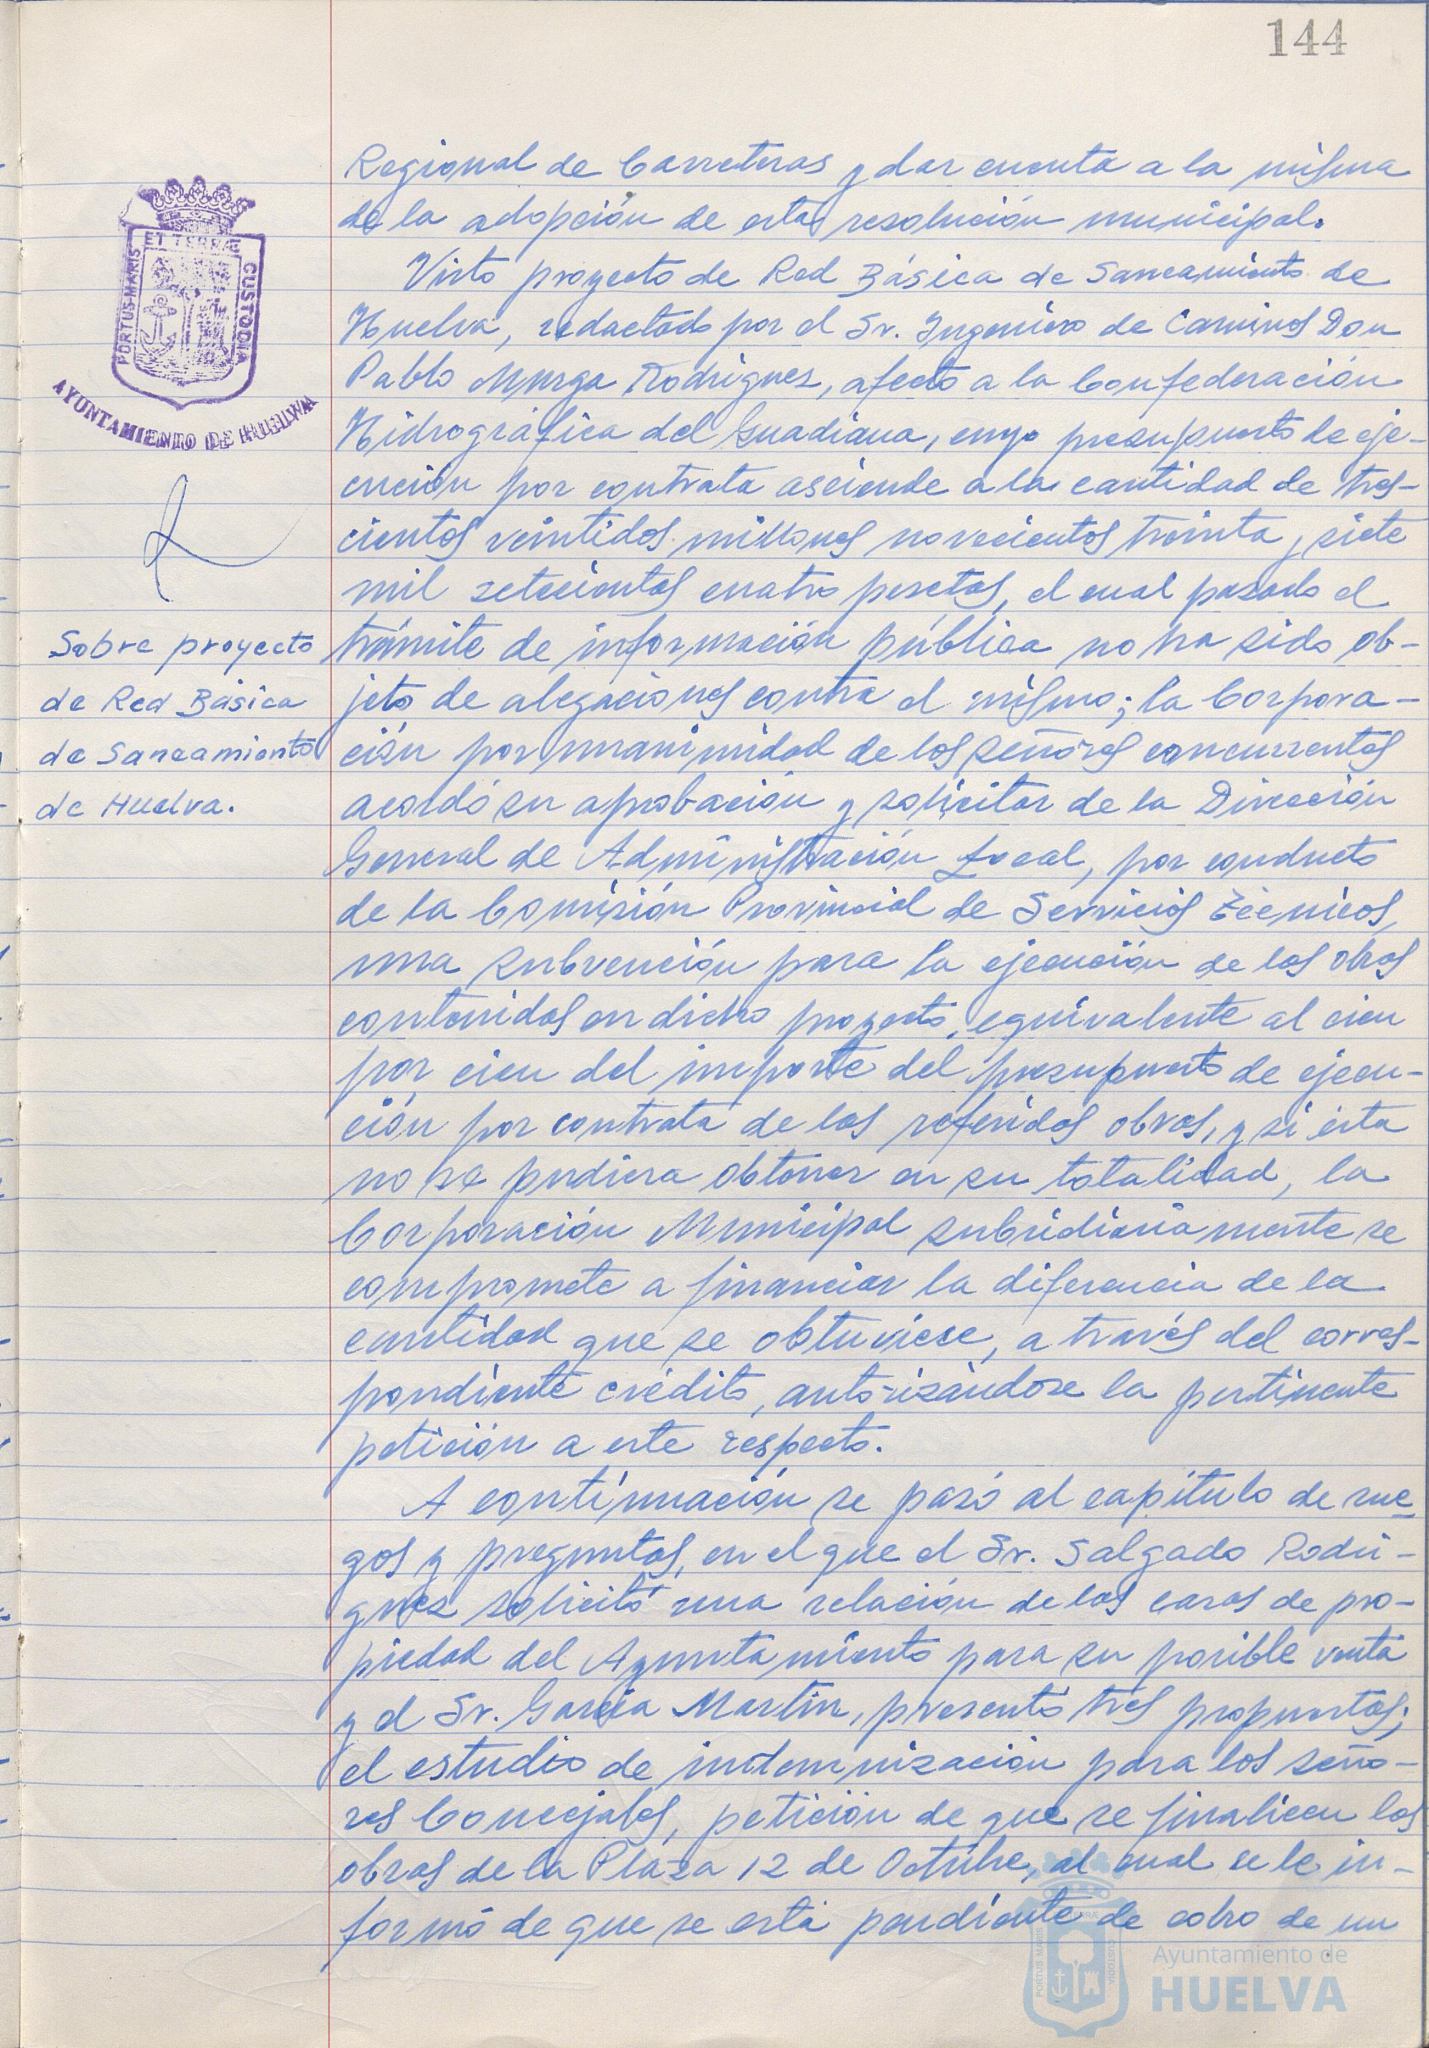 144
Regional de Carreteras y dar cuenta a la misma
de la adopción de esta resolución municipal.
Visto proyecto de Red Básica de Saneamiento de
Huelva, redactado por el Sr. Ingeniero de Caminos Don
Pablo Murga Rodriguez, afecto a la Confederación
Hidrográfica del Guadiana, cuyo presupuesto de eje-
cución por contrata asciende a la cantidad de tres-
cientos veintidos millones novecientos treinta y siete
mil setecientos cuatro pesetas, el cual pasado el
trámite de información pública no ha sido ob-
jeto de alegaciones contra el mismo; la Corpora-
ción por unanimidad de los señores concurrentes
acordó su aprobación y solicitar de la Dirección
General de Administración Local, por conducto
de la Comisión Provincial de Servicios Técnicos,
una subvención para la ejecución de las obras
contenidas en dicho proyecto, equivalente al cien
por cien del importe del presupuesto de ejecu-
ción por contrata de las referidas obras, y si ésta
no se pudiera obtener en su totalidad, la
Corporación Municipal subsidiariamente se
compromete a financiar la diferencia de la
cantidad que se obtuviese, a través del corres-
pondiente crédito, autorizándose la pertinente
petición a este respecto.
A continuación se pasó al capítulo de rue-
gos y preguntas, en el que el Sr. Salgado Rodri-
guez solicitó una relación de las casas de pro-
piedad del Ayuntamiento para su posible venta
y el Sr. García Martín, presentó tres propuestas;
el estudio de indemnización para los seño-
res Concejales, petición de que se finalicen las
obras de la Plaza 12 de Octubre, al cual se le in-
formó de que se está pendiente de cobro de un
PORTUS MARIS
ET TERRÆ
CUSTODIA
AYUNTAMIENTO DE HUELVA
Sobre proyecto
de Red Básica
de Saneamiento
de Huelva.
PORTUS MARIS
CUSTODIA
Ayuntamiento de
HUELVA